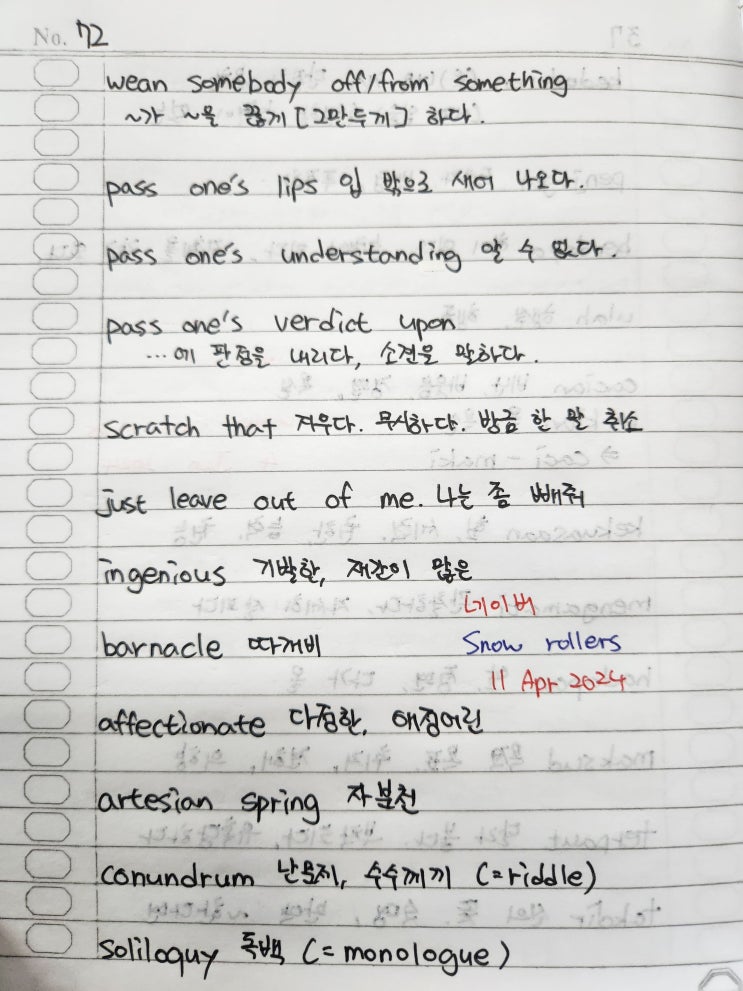 No. 72
wean somebody off/from something
~가 ~을 끊게 [그만두게] 하다.
pass one's lips 입 밖으로 새어 나오다.
pass one's understanding 알 수 없다.
pass one's verdict upon
...에 판정을 내리다, 소견을 말하다.
scratch that 지우다. 무시하다. 방금 한 말 취소
just leave out of me. 나는 좀 빼줘
ingenious 기발한, 재간이 많은
네이버
barnacle 따개비
Snow rollers
11 Apr 2024
affectionate 다정한, 애정어린
artesian spring 자분천
conundrum 난문제, 수수께끼 (=riddle)
soliloquy 독백 (=monologue)